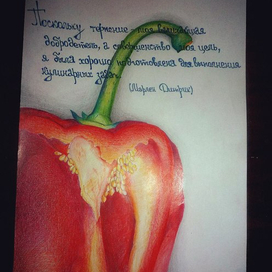 Поскольку терпение моя главная
добродетель, а совершенство моя цель,
я была хорошо подготовлена для выполнения
кулинарных задач.
(Марлен Дитрих)